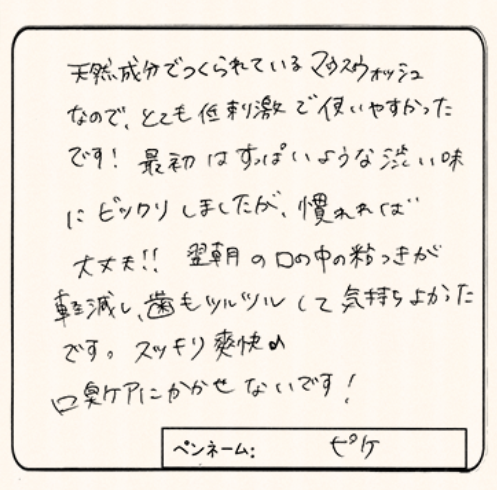 天然成分でつくられているマウスウォッシュ
なので、とても低刺激で使いやすかった
です! 最初はすっぱいような渋い味
にビックリしましたが、慣れれば
大丈夫!! 翌朝の口の中の粘つきが
軽減し、歯もツルツルして気持ちよかった
です。スッキリ爽快♪
口臭ケアにかかせないです!
ペンネーム: ピケ